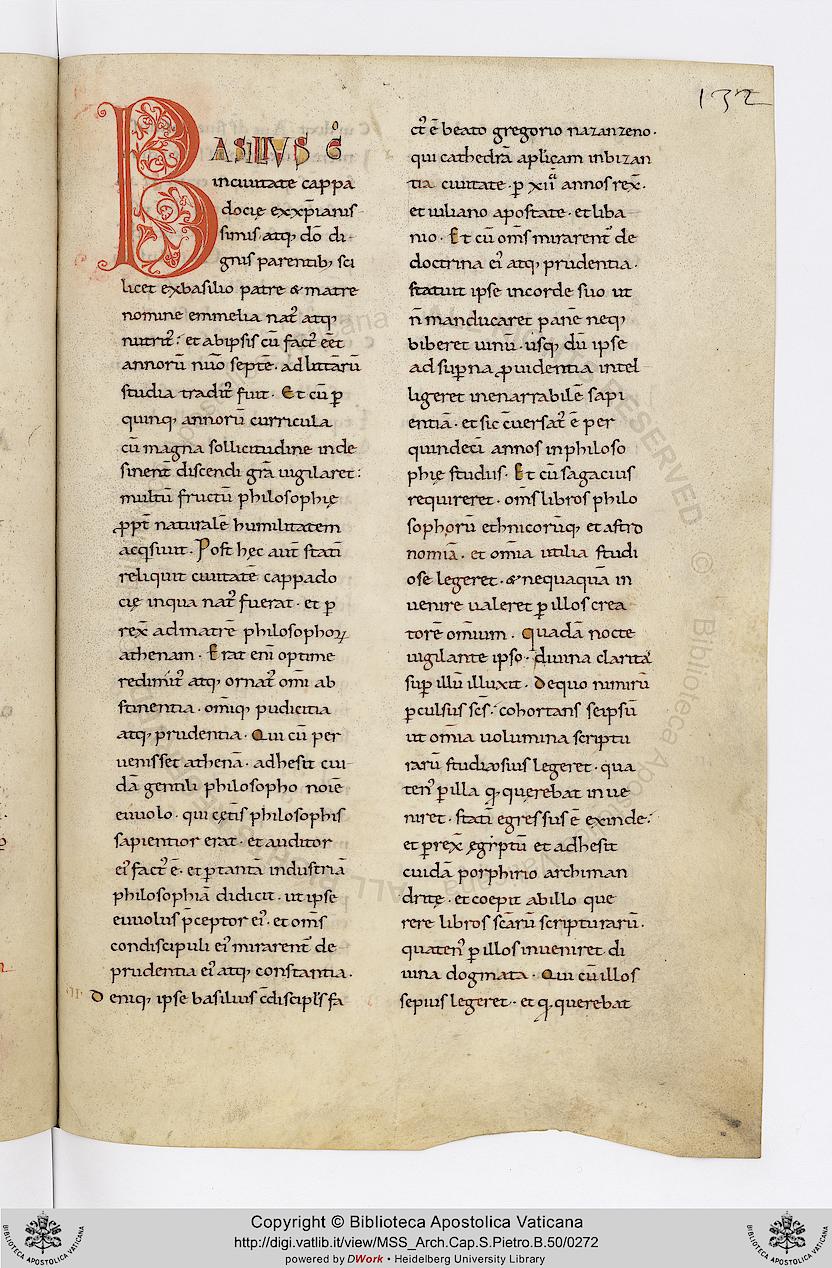 132
BASILIUS ḡ
in ciuitate cappa
docię ex xp̄ianis
simis atq; dō di
gnis parentib; sci
licet ex basilio patre & matre
nomine emmelia nat᷒ atq;
nutrit᷒. et ab ipsis cū fact᷒ eēt
annorū num̄o septē. ad litt̄arū
studia tradit᷒ fuit. Et cū p̄
quinq; annorū curricula
cū magna sollicitudine inde
sinent̄ discendi grā uigilaret.
multū fructū philosophię
ꝓpt̄ naturalē humilitatem
acq̄siuit. Post hęc aut̄ statī
reliquit ciuitatē cappado
cię in qua nat᷒ fuerat. et ꝑ
rex̄ ad matrē philosophoꝝ
athenam. Erat eni̅ optime
redimit᷒ atq; ornat᷒ om̄i ab
stinentia. om̄iq; pudicitia
atq; prudentia. Qui cū per
uenisset athenā. adhesit cui
dā gentili philosopho noīe
euuolo. qui cęt̄is philosophis
sapientior erat. et auditor
ei᷒ fact᷒ ē. et ꝑ tantā industriā
philosophiā didicit. ut ipse
euuolus p̄ceptor ei᷒. et om̄s
condiscipuli ei᷒ mirarent᷒ de
prudentia ei᷒ atq; constantia.
II. Deniq; ipse basilius c̄discipl̄s fa
ct᷒ ē beato gregorio nazanzeno.
qui cathedrā apl̄icam in bizan
tia ciuitate. ꝑ xii annos rex̄.
et iuliano apostate. et liba
nio. Et cū om̄s mirarent᷒ de
doctrina ei᷒ atq; prudentia.
statuit ipse in corde suo ut
n̄ manducaret panē neq;
biberet uinū. usq; dū ipse
ad sup̄na ꝓuidentia intel
ligeret inenarrabilē sapi
entiā. et sic c̄uersat᷒ ē per
quindecī annos in philoso
phię studiis. Et cū sagacius
requireret. om̄s libros philo
sophorū ethnicorūq; et astro
nomiā. et om̄ia utilia studi
ose legeret. & nequaquā in
uenire ualeret ꝑ illos crea
torē omnium. Quadā nocte
uigilante ipso. diuina claritas
sup̄ illū illuxit. De quo nimirū
ꝑculsus scs̄. cohortans seipsū
ut om̄ia uolumina scriptu
rarū studiosius legeret. qua
ten᷒ ꝑ illa q̄ querebat inue
niret. statī egressus ē exinde.
et ꝑrex̄ ęgiptū et adhesit
cuidā porphirio archiman
dritę. et coepit ab illo que
rere libros scārū scripturarū.
quaten᷒ ꝑ illos inueniret di
uina dogmata. Qui cū illos
sepius legeret. et q̄ querebat
Copyright © Biblioteca Apostolica Vaticana
http://digi.vatlib.it/view/MSS_Arch.Cap.S.Pietro.B.50/0272
powered by DWork • Heidelberg University Library
BIBLIOTECA APOSTOLICA VATICANA
BIBLIOTECA APOSTOLICA VATICANA